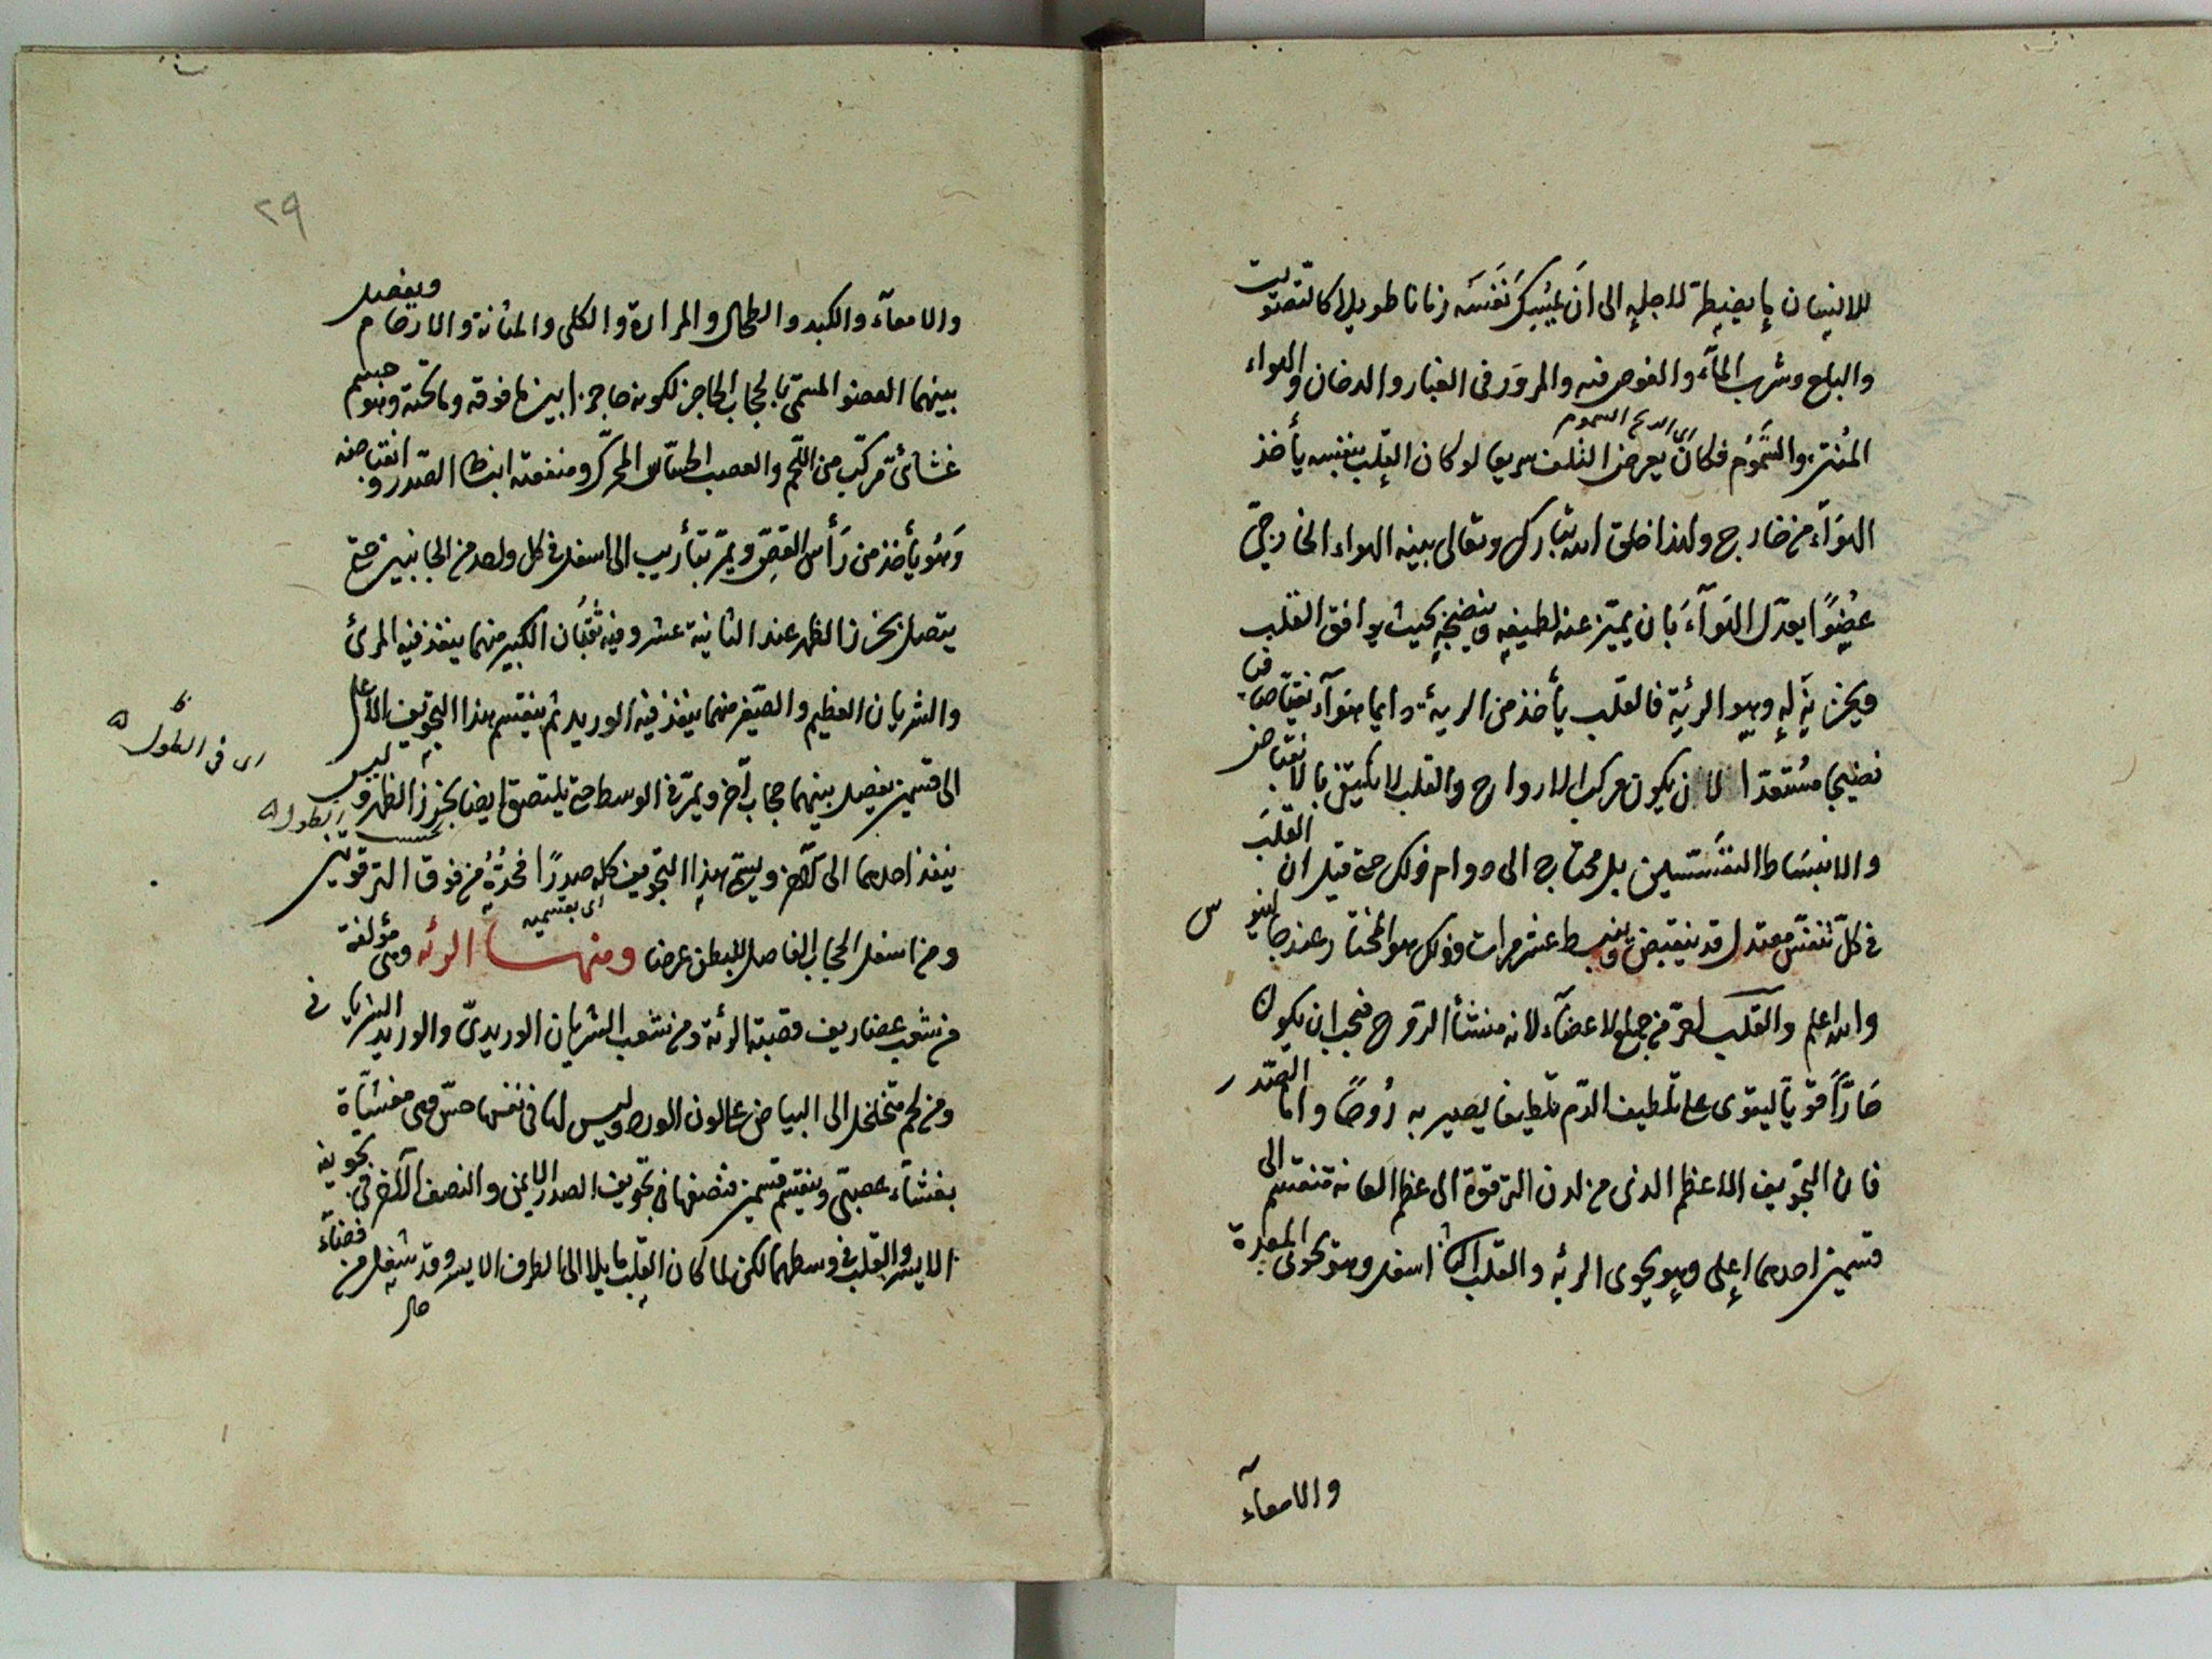 للانسان ما يضطر لاجله الى ان يمسك نفسه زمانا طويلا كالتصويت
والبلع وشرب المآء والغوص فيه والمرور فى الغبار والدخان والهواء
اى الريح السموم
المنتن والسموم فكان يعرض التلف سريعا لو كان القلب بنفسه يأخذ
الهوآء من خارج ولهذا خلق الله تبارك وتعالى بينه الهواء الخارجى
عضوًا يعدّل الهوآءَ بان يميّز عنه لطيفه وينضجه بحيث يوافق القلب
ويخزنه له وهو الرئة فالقلب يأخذ من الرية دايما هوآء نقيّا صافيا
نضيجا مستعدا لان يكون مركب الارواح والقلب لا يكتفى بالانقباض
والانبساط النفسيين بل محتاج الى دوام ذلك حتى قيل ان القلبَ
فى كلّ تنفّس معتدل قد ينقبض وينبسط عشر مرات وذلك هو المختار عند جالينوس
والله اعلم والقلب احرّ من جميع الاعضآء لانه منشأ الروح فيجب ان يكون
حارًّا قويّا ليقوى على تلطيف الدّم تلطيفا يصير به رُوحًا واما الصّدر
فان التجويف الاعظم الذى من لدن الترقوة الى عظم العانة منقسم الى
قسمين احدهما اعلى وهو يحوى الرئه والقلب الثانى اسفل وهو يحوى المعدة
والامعآء
٢٩
والامعآء والكبد والطحال والمرارة والكلى والمثانة والارحام ويفصل
بينهما العضو المسمّى بالحجاب الحاجز لكونه حاجزا بين ما فوقه وما تحته وهو جسم
غشائىّ مركّب من اللحم والعصب الحسّاس المحرك ومنفعته انبساط الصّدر وانقباضه
وَهُو يأخذ من رَأس القصّ ويمرّ بتأريب الى اسفل فى كل واحد من الجانبين حتى
يتصل بخرز الظهر عند الثانية عشر وفيه ثقبان الكبير منهما ينفذ فيه المرئ
والشريان العظيم والصّغير منهما ينفذ فيه الوريد ثم ينقسم هذا التجويف الاعلى
اى فى الطول
الى قسمين يفصل بينهما حجاب آخر ويمرّ فى الوسط حتى يلتصق ايضا بخرز الظهر وليس
ينفذ احدهما الى الآخر ويسمّى هذا التجويف كله صدرًا فحدّه من فوق الترقوتين
اى بقسميه
ومن اسفل الحجاب الفاصل للبطن عرضا ومنها الرئه وهى مؤلفة
من شعب غضاريف قصبة الرئة ومن شعب الشريان الوريدىّ والوريد الشريانى
ومن لحم متخلخل الى البياض على لون الورد وليس لها فى نفسها حسّ وهى مغشّاة
بغشآء عصبىّ وينقسم قسمين نصفها فى تجويف الصدر الايمن والنصف الآخر فى تجويفه
الايسر والقلب فى وسطهما لكن لما كان القلب مايلا الى الطرف الايسر وقد شغل من فضآء